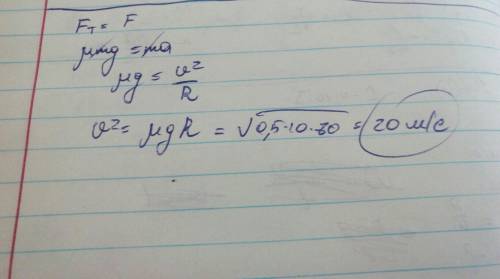 Fт = F
μmg = ma
μg = v²/R
v² = μgR = √0,5·10·80 = 20 м/с